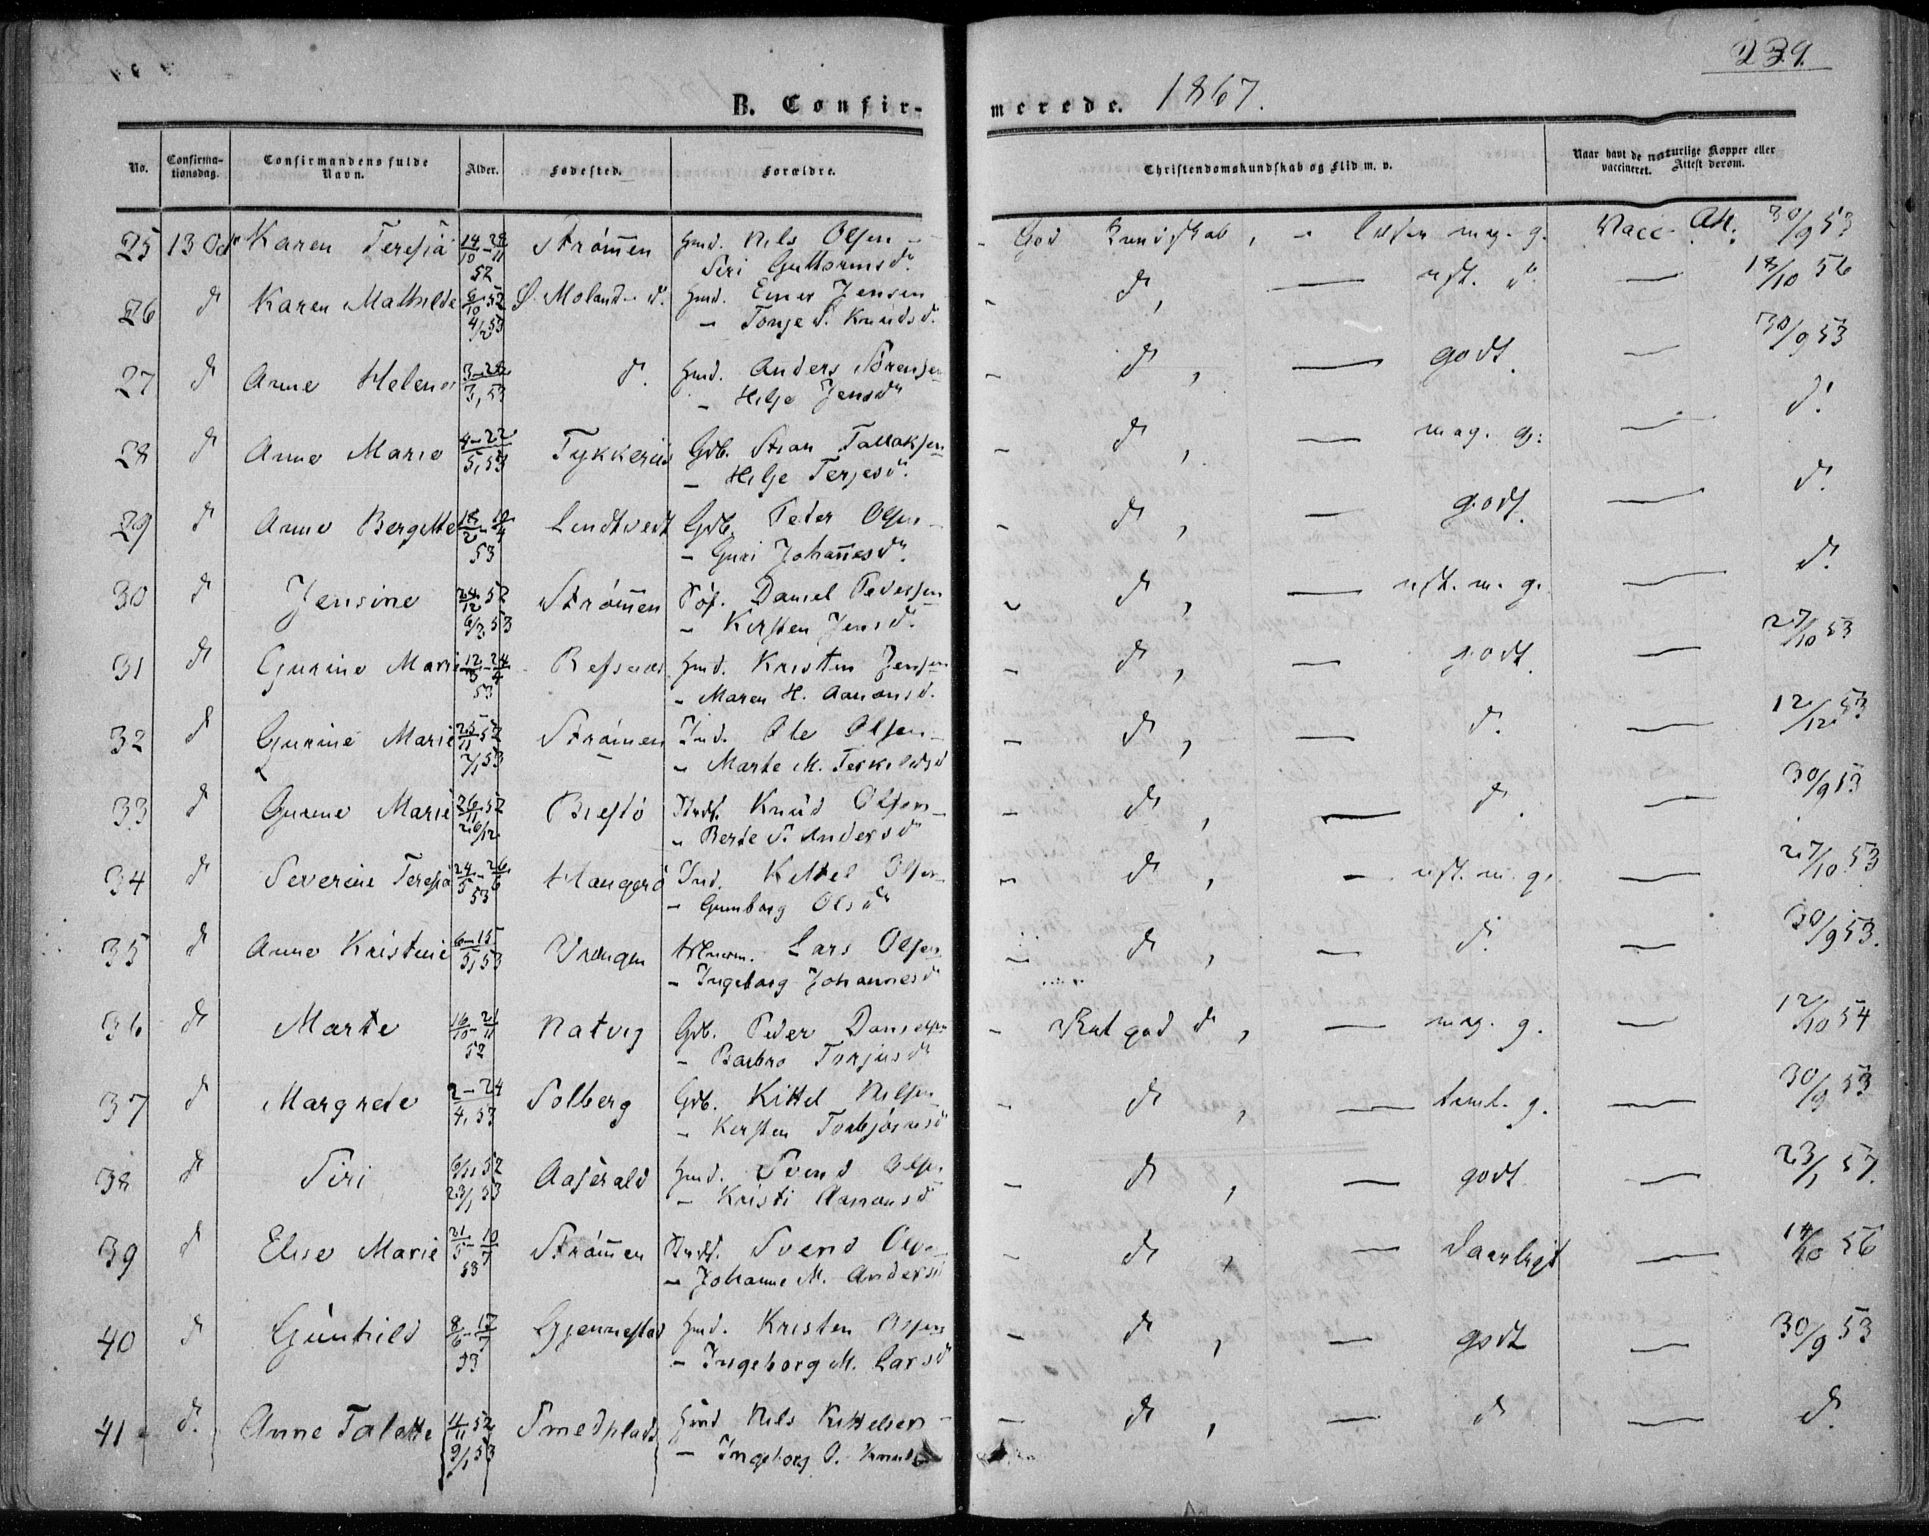 239.
B. Confirmerede. 1867.
No. Confirmationsdag. Confirmandens fulde Navn. Alder. Fødested. Forældre. Christendomskundskab og Flid m. v. Naar havt de naturlige Kopper eller vaccineret. Attest derom.
25 13 Oct Karen Teresia 14/10 - 28/11 52 Strømmen Hmd. Nils Olsen - God Kundskab, - mag. g. Vacc. Att. 30/9 53
Siri Guttormsd.
26 d Karen Mathilde 6/10 52 Ø. Moland d. Hmd. Einer Jensen - d, — d. — 18/10 56
4/2 53 - Tonje S. Knudsd.
27 d Anne Helene 3-28/3, 53 d. Hmd. Anders Sørensen - d, — godt. — 30/9 53
- Helje Jensd
28 d Anne Marie 4-22/5, 53 Tykkerias Gdb. Stian Tallaksen - d, — mag. g. — d.
- Helje Terjesd.
29 d Anne Bergitte 18/2 - 10/4 Lindtveit Gdb. Peder Olsen - d, — godt. — d.
53 - Guri Johannesd.
30 d Jensine 24/12 52 Strømmen Søf. Daniel Pedersen - d, — m. g. — d.
6/3 53 - Kirsten Jensd.
31 d Gurine Marie 12/3 - 24/4 Refsnes Hmd. Kristen Jensen - d, — godt. — 27/10 53
53 - Maren H. Aanonsd.
32 d Gurine Marie 25/11 52 Strømmen Ind. Ole Olsen - d, — d. — 12/12 53
7/1 53 - Marte M. Terkildsd
33 d Gurine Marie 26/11 52 Brestø Knud Olsen - d, — d. — 30/9 53
26/12 - Berte S. Andersd
34 d Severine Teresia 24/5 - 26/6 Haugerø Ind. Kittel Olsen - d, — m. g. — 27/10 53
53 - Gunborg Olsd
35 d Anne Kristine 6-15/5, 53 Vrengen Lars Olsen - d, — d. — 30/9 53.
- Ingeborg Johannesd
36 d Marte 16/10 - 21/11 Natvig Gdb. Peder Danielsen - god d, — mag. g. — 12/10 54
52 - Barbro Torjusd
37 d Margrete 2-24/4, 53 Solberg Gdb. Kittel Nilsen - d, — teml. g. — 30/9 53
- Kirsten Torbjørnsd
38 d Siri 6/11 52 Aaserald Hmd. Svend Olsen - d, — godt — 23/1 57.
23/1 53 - Kristi Aanonsd
39 d Elise Marie 21/5 - 10/7 Strømmen Svend - d, — daarligt — 14/10 56
53 - Johanne M. Andersd
40 d Gunhild 8/6 - 17/7 Gjennestad Hmd. Kristen - d, — godt — 30/9 53
53 - Ingeborg M. Larsd
41 d. Anne Talette 14/11 52 Smedplads Hmd Nils Kittelsen - d, — d — d.
9/1 53 - Ingeborg O. Knudsd